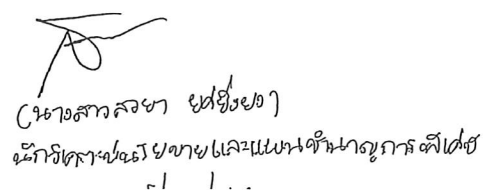 (นางสาวสวยา ยศยิ่งยง)
นักวิเคราะห์นโยบายและแผนชำนาญการพิเศษ